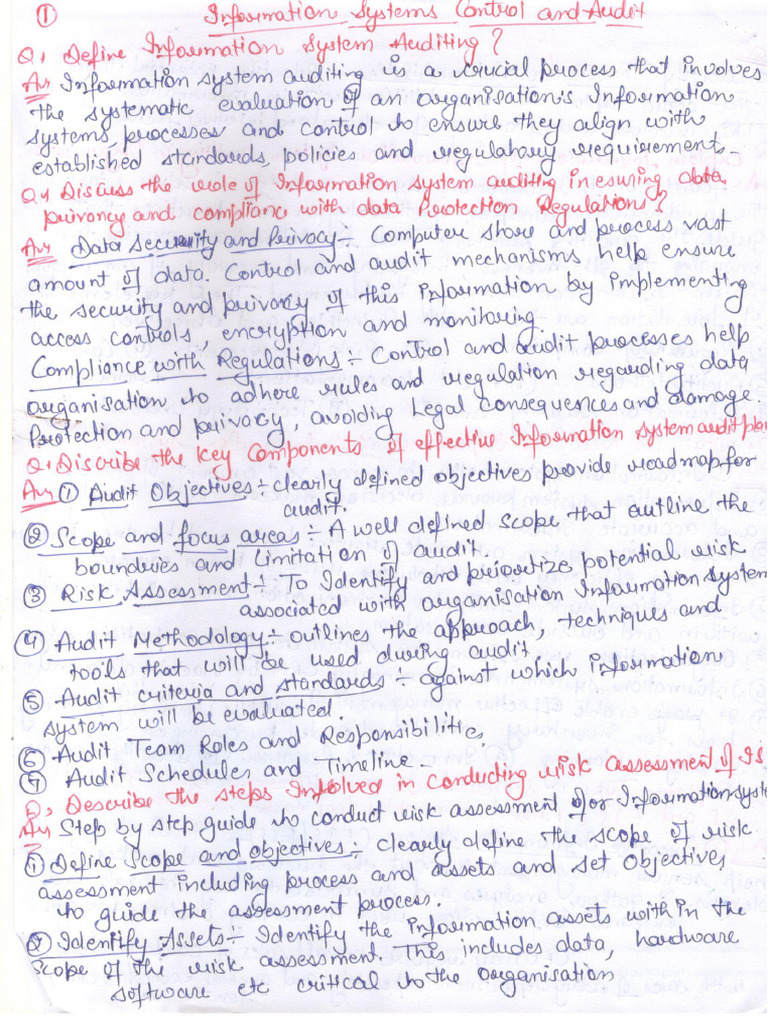 ① Information Systems Control and Audit
Q, Define Information System Auditing?
An Information system auditing is a crucial process that involves
the systematic evaluation of an organisation's Information
systems, processes and control to ensure they align with
established standards, policies and regulatory requirement.
Q, Discuss the role of Information system auditing in esuring data
privancy and complianc with data Protection Regulations?
An Data Security and Privacy:- Computer store and process vast
amount of data. Control and audit mechanisms help ensure
the security and privacy of this information by implementing
access controls, encryption and monitoring.
Compliance with Regulations:- Control and audit processes help
organisation to adhere rules and regulation regarding data
Protection and privacy, avoiding Legal consequences and damage.
Q, Discribe the Key Components of effective Information system audit plan
An ① Audit Objectives:- clearly defined objectives provide roadmap for
audit.
② Scope and focus areas:- A well defined scope that outline the
boundries and limitation of audit.
③ Risk Assessment:- To Identify and prioretize potential risk
associated with organisation Information system
④ Audit Methodology:- outlines the approach, techniques and
tools that will be used during audit
⑤ Audit criteria and standards:- against which information
system will be evaluated.
⑥ Audit Team Roles and Responsibilities,
⑦ Audit Schedules and Timeline
Q, Describe the steps Involved in conducting risk assessment of IS
An Step by step guide to conduct risk assessment for Information syste
① Define Scope and objectives:- clearly define the scope of risk
assessment including process and assets and set Objectives
to guide the assessment process.
② Identify Assets:- Identify the information assets with in the
scope of the risk assessment. This includes data, hardware
software etc critical to the organisation